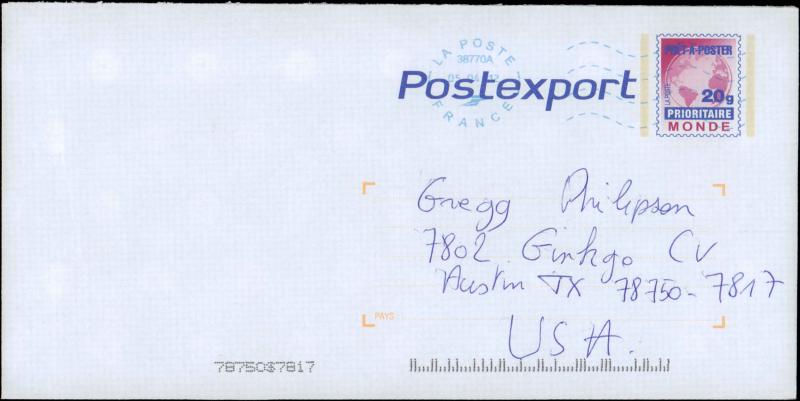 LA POSTE
38770A
05.04.12
FRANCE
Postexport
PRÊT-A-POSTER
20g
PRIORITAIRE
MONDE
Gregg Philipson
7802 Ginkgo CV
Austin TX 78750-7817
PAYS
USA.
78750$7817